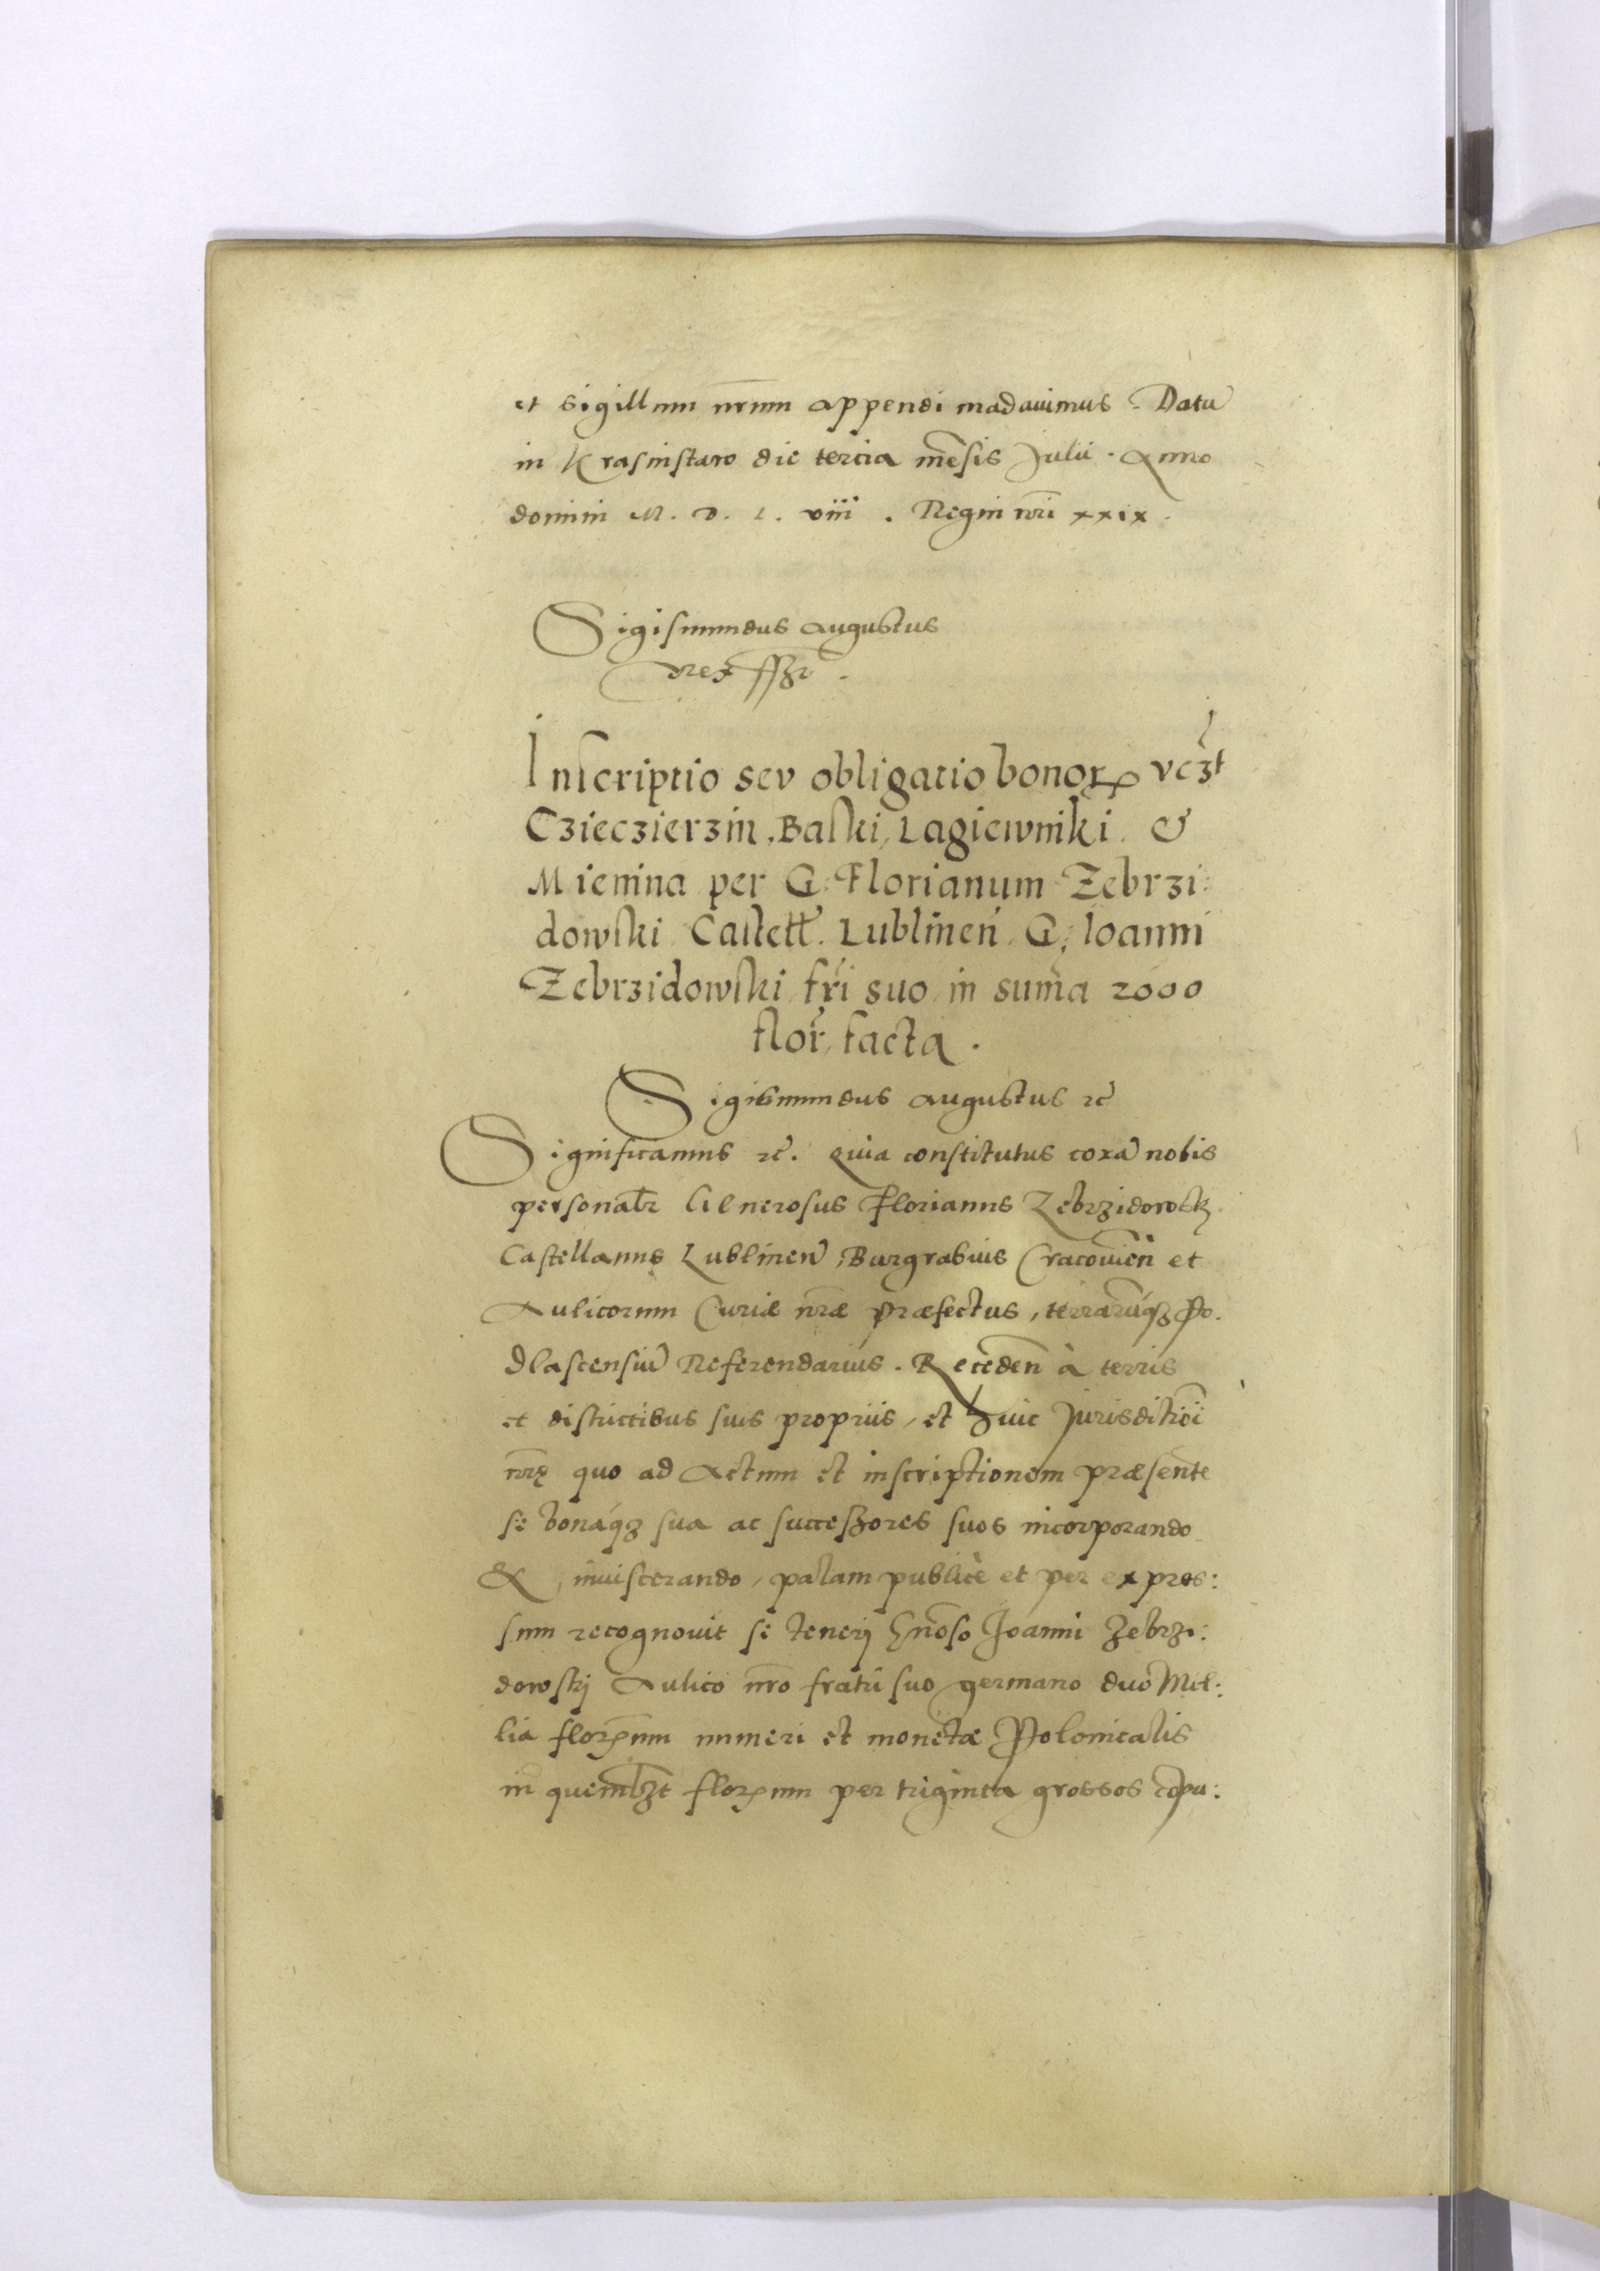 et sigillum nr̄um appendi mādauimus. Datū
in Krasnistaw die tercia mēsis Julii. Anno
domini M. D. L. viii. Regni nr̄i xxix.
Sigismundus Augustus
Rex sszt.
Inscriptio seu obligatio bonoꝝ vcꝫt
Czieczierzin, Baski, Lagiewniki &
Mienina per G: Florianum Zebrzi:
dowski Castell̄. Lublineñ G: Ioanni
Zebrzidowski fr̄i suo in sum̄a 2000
flor̄ facta.
Sigismundus Augustus ꝛc̄
Significamus ꝛc̄. Quia constitutus corā nobis
personalr̄ Generosus Florianus Zebrzidowskj
Castellanus Lublineñ, Burgrabius Cracovieñ et
Aulicorum Curiæ nr̄æ præfectus, terrarūqꝫ Po.
dlascensiū Referendarius. Recedeñ à terris
et districtibus suis propriis, et huic Jurisditiōi
nr̄ę quo ad Actum et inscriptionem præsentē
se bonáqꝫ sua ac successores suos incorporando
& inuiscerando, palam publicè et per expres:
sum recognouit se tenerj Gn̄oso Joanni Zebrzi:
dowskj Aulico nr̄o fratri suo germano duo Mil:
lia florꝫnum numeri et monetæ Polonicalis
in quemlꝫt florꝫnum per triginta grossos cōpu: